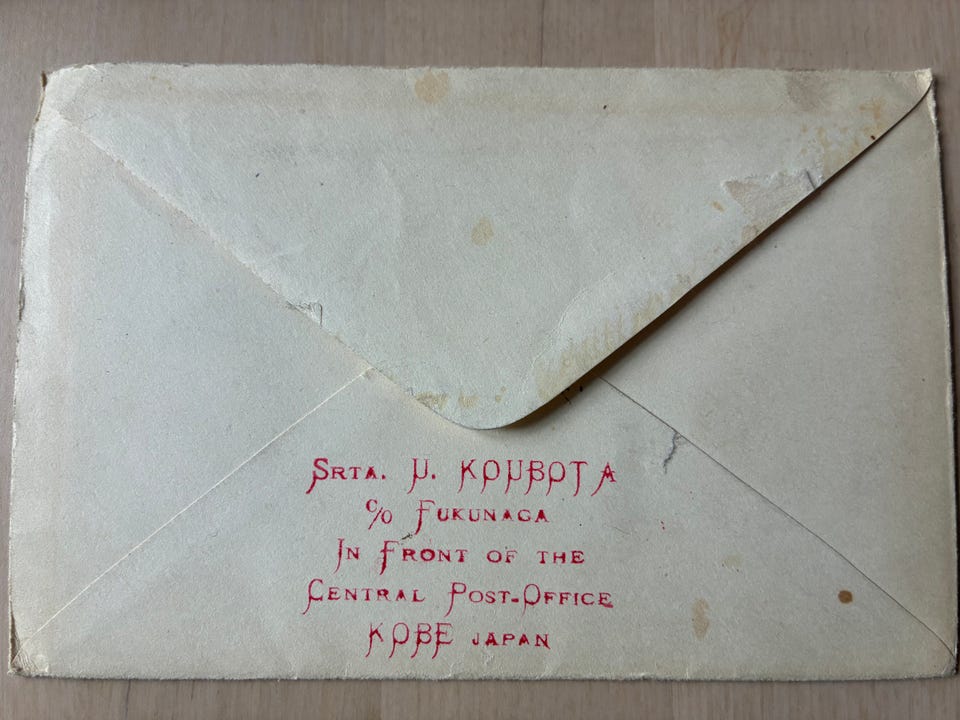 SRTA. U. KOUBOTA
c/o FUKUNAGA
IN FRONT OF THE
CENTRAL POST-OFFICE
KOBE JAPAN